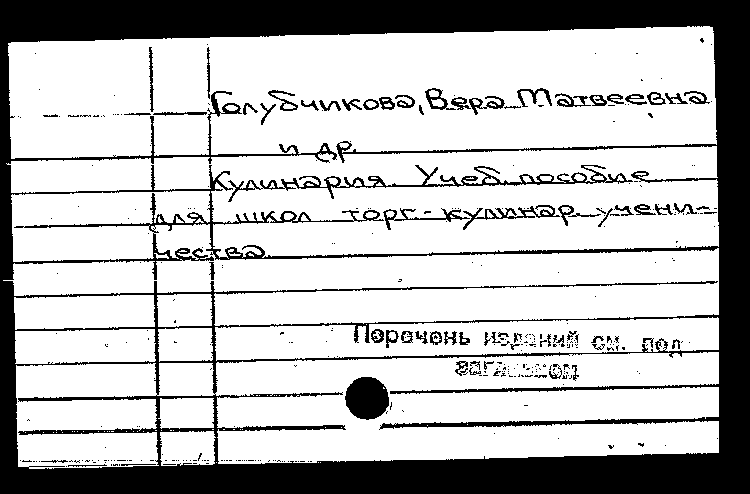 Голубчикова, Вера Матвеевна
и др.
Кулинария. Учеб. пособие
для школ торг.-кулинар. учени-
чества.
Перечень изданий см. под
заглавием